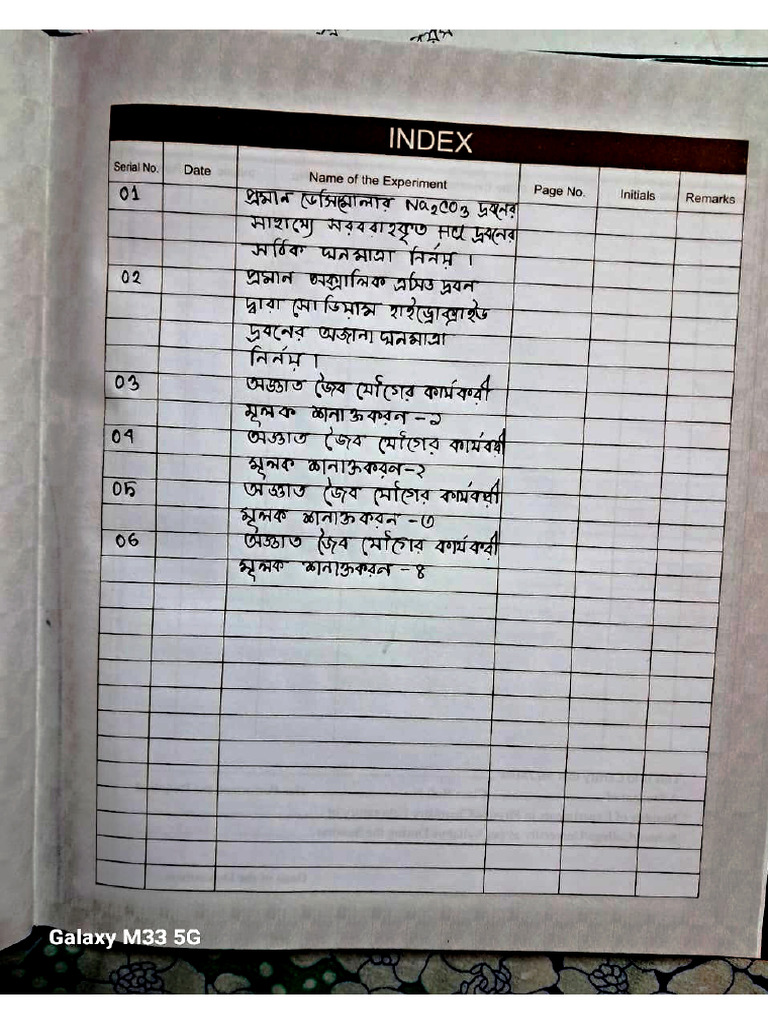 INDEX
Serial No. Date Name of the Experiment Page No. Initials Remarks
01 প্রমান ডেসিমোলার Na2CO3 দ্রবনের
সাহায্যে সরবরাহকৃত HCl দ্রবনের
সঠিক ঘনমাত্রা নির্নয়।
02 প্রমান অক্সালিক এসিড দ্রবন
দ্বারা সোডিয়াম হাইড্রোক্সাইড
দ্রবনের অজানা ঘনমাত্রা
নির্নয়।
03 অজ্ঞাত জৈব যৌগের কার্যকরী
মূলক শনাক্তকরন -১
04 অজ্ঞাত জৈব যৌগের কার্যকরী
মূলক শনাক্তকরন-২
05 অজ্ঞাত জৈব যৌগের কার্যকরী
মূলক শনাক্তকরন -৩
06 অজ্ঞাত জৈব যৌগের কার্যকরী
মূলক শনাক্তকরন -৪
Galaxy M33 5G